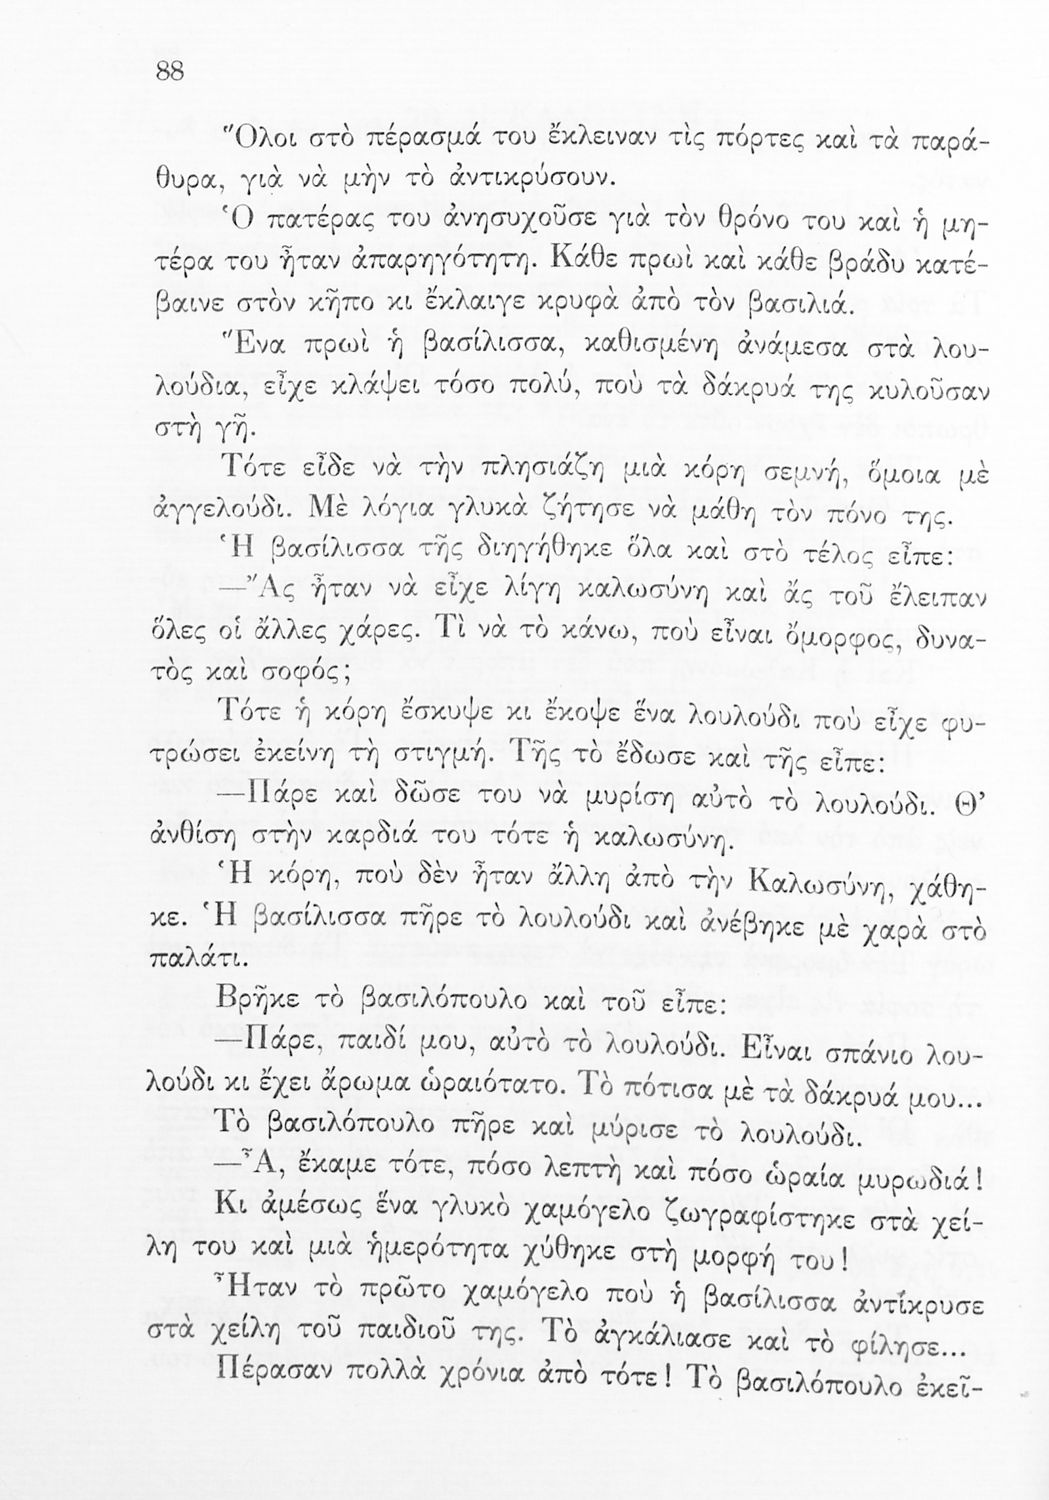 88
Ὅλοι στὸ πέρασμά του ἔκλειναν τὶς πόρτες καὶ τὰ παρά-
θυρα, γιὰ νὰ μὴν τὸ ἀντικρύσουν.
Ὁ πατέρας του ἀνησυχοῦσε γιὰ τὸν θρόνο του καὶ ἡ μη-
τέρα του ἦταν ἀπαρηγότητη. Κάθε πρωὶ καὶ κάθε βράδυ κατέ-
βαινε στὸν κῆπο κι ἔκλαιγε κρυφὰ ἀπὸ τὸν βασιλιά.
Ἕνα πρωὶ ἡ βασίλισσα, καθισμένη ἀνάμεσα στὰ λου-
λούδια, εἶχε κλάψει τόσο πολύ, ποὺ τὰ δάκρυά της κυλοῦσαν
στὴ γῆ.
Τότε εἶδε νὰ τὴν πλησιάζη μιὰ κόρη σεμνή, ὅμοια μὲ
ἀγγελούδι. Μὲ λόγια γλυκὰ ζήτησε νὰ μάθη τὸν πόνο της.
Ἡ βασίλισσα τῆς διηγήθηκε ὅλα καὶ στὸ τέλος εἶπε:
—Ἄς ἦταν νὰ εἶχε λίγη καλωσύνη καὶ ἄς τοῦ ἔλειπαν
ὅλες οἱ ἄλλες χάρες. Τὶ νὰ τὸ κάνω, ποὺ εἶναι ὄμορφος, δυνα-
τὸς καὶ σοφός;
Τότε ἡ κόρη ἔσκυψε κι ἔκοψε ἕνα λουλούδι ποὺ εἶχε φυ-
τρώσει ἐκείνη τὴ στιγμή. Τῆς τὸ ἔδωσε καὶ τῆς εἶπε:
—Πάρε καὶ δῶσε του νὰ μυρίση αὐτὸ τὸ λουλούδι. Θ’
ἀνθίση στὴν καρδιά του τότε ἡ καλωσύνη.
Ἡ κόρη, ποὺ δὲν ἦταν ἄλλη ἀπὸ τὴν Καλωσύνη, χάθη-
κε. Ἡ βασίλισσα πῆρε τὸ λουλούδι καὶ ἀνέβηκε μὲ χαρὰ στὸ
παλάτι.
Βρῆκε τὸ βασιλόπουλο καὶ τοῦ εἶπε:
—Πάρε, παιδί μου, αὐτὸ τὸ λουλούδι. Εἶναι σπάνιο λου-
λούδι κι ἔχει ἄρωμα ὡραιότατο. Τὸ πότισα μὲ τὰ δάκρυά μου...
Τὸ βασιλόπουλο πῆρε καὶ μύρισε τὸ λουλούδι.
—Ἆ, ἔκαμε τότε, πόσο λεπτὴ καὶ πόσο ὡραία μυρωδιά!
Κι ἀμέσως ἕνα γλυκὸ χαμόγελο ζωγραφίστηκε στὰ χεί-
λη του καὶ μιὰ ἡμερότητα χύθηκε στὴ μορφή του!
Ἦταν τὸ πρῶτο χαμόγελο ποὺ ἡ βασίλισσα ἀντίκρυσε
στὰ χείλη τοῦ παιδιοῦ της. Τὸ ἀγκάλιασε καὶ τὸ φίλησε...
Πέρασαν πολλὰ χρόνια ἀπὸ τότε! Τὸ βασιλόπουλο ἐκεῖ-